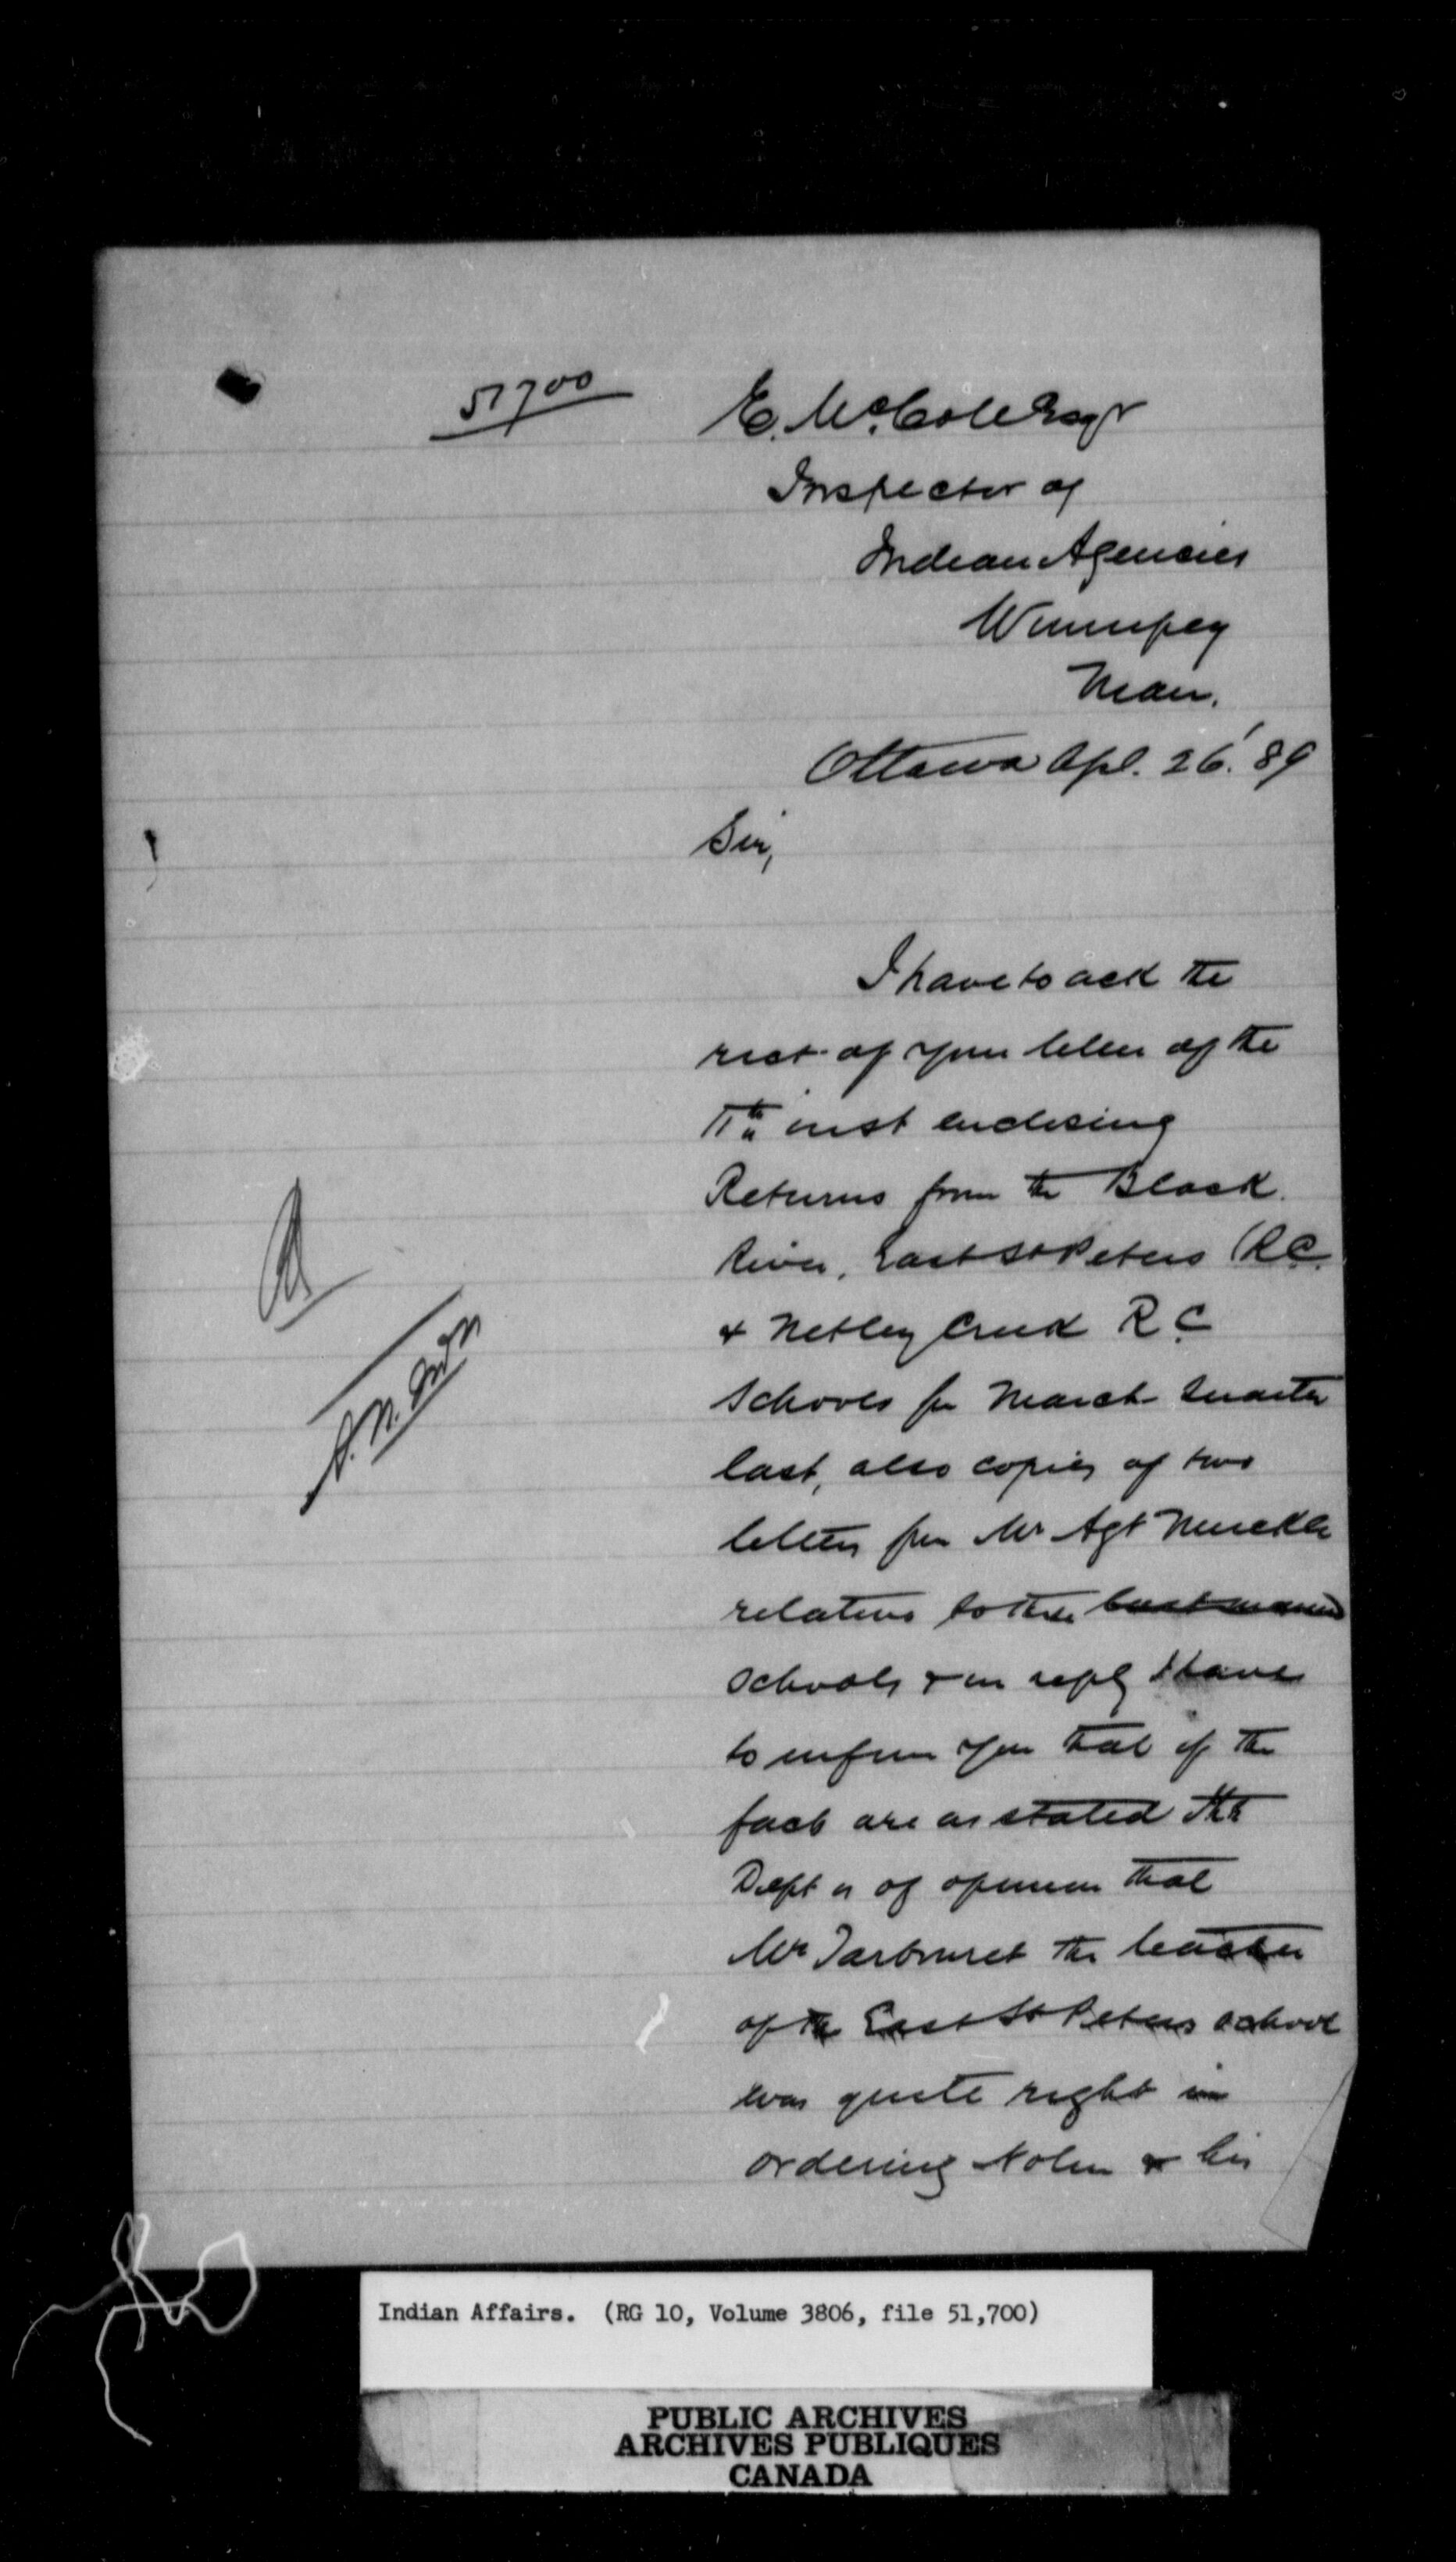 51700
E. McColl Esqr
Inspector of
Indian Agencies
Winnipeg
Man.
Ottawa Apl. 26. '89
Sir,
I have to ack the
rect. of your letter of the
11th inst enclosing
Returns from the Black
River, East St Peters (R.C.
& Netley Creek R C
Schools for March Quarter
last, also copies of two
letters fm Mr Agt Muckle
relative to these
schools & in reply I have
to inform you that if the
facts are as stated the
Dept is of opinion that
Mr the teacher
of the East St Peters school
was quite right in
ordering Nolin & his
Indian Affairs. (RG 10, Volume 3806, file 51,700)
PUBLIC ARCHIVES
ARCHIVES PUBLIQUES
CANADA